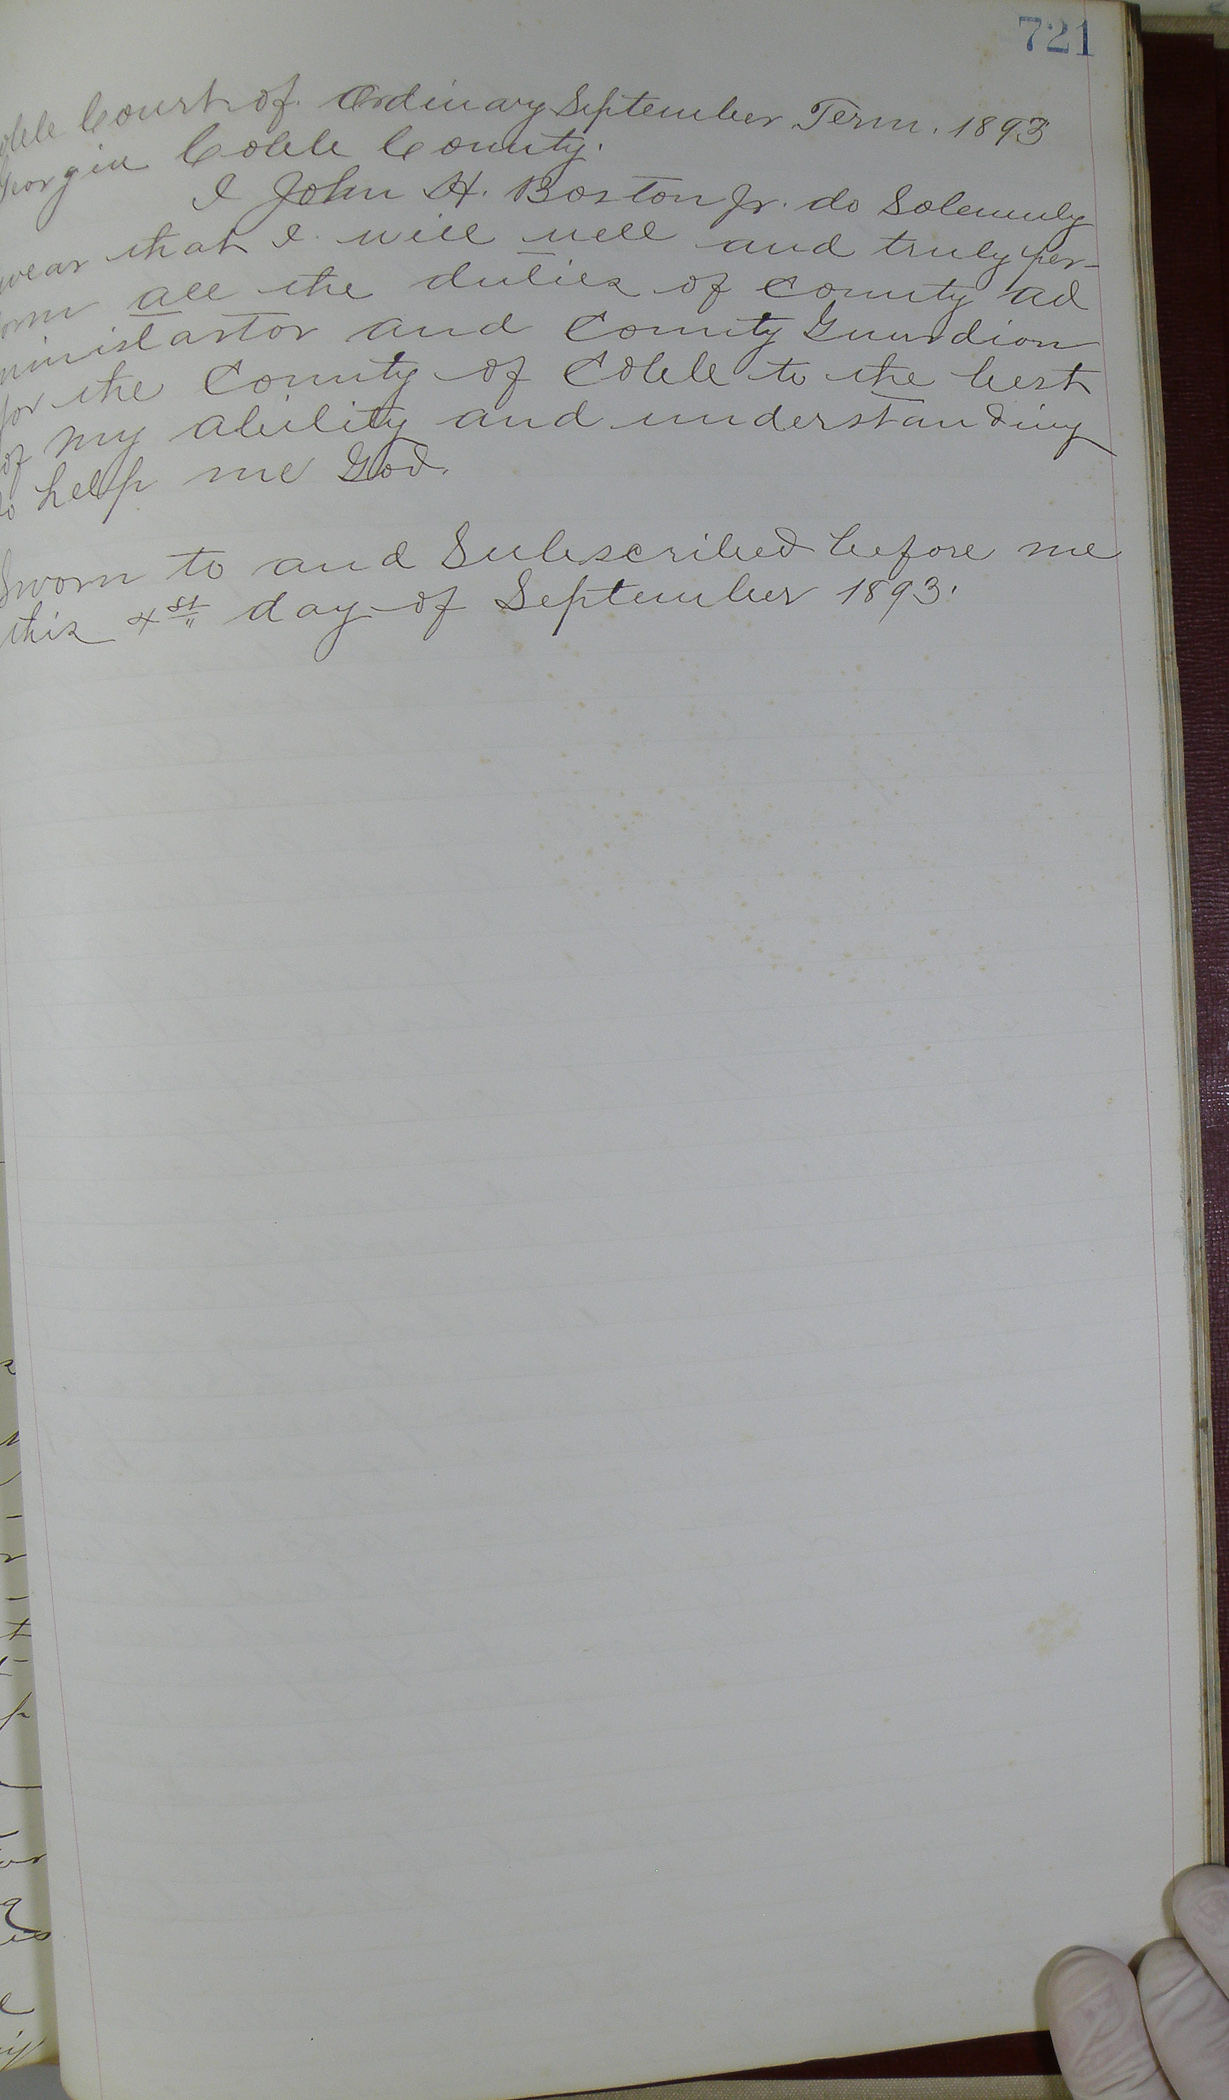 721
Cobb Court of Ordinary September Term. 1893
Georgia Cobb County.
I John H. Boston Jr. do Solemnly
swear that I will well and truly per-
form all the duties of County ad
ministartor and County Guardion
for the County of Cobb to the best
of my ability and understanding
So help me God.
Sworn to and Subscribed before me
this 4st day of September 1893.